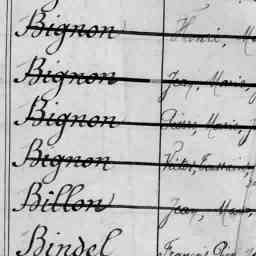 Bignon Henri, M
Bignon Jean, Marie, J
Bignon Pierre, Marie, J
Bignon Victor,
Billon Jean, Marie,
Bindel François